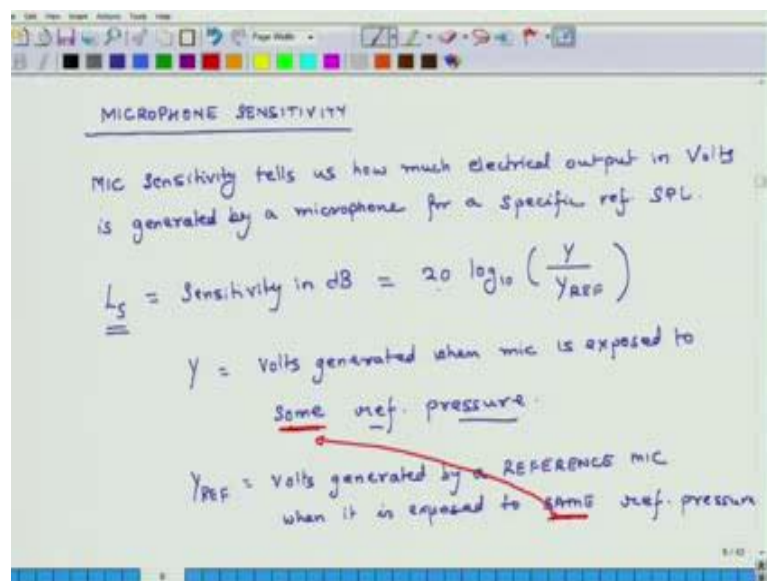 Edit View Insert Actions Tools Help
Page Width
MICROPHONE SENSITIVITY
MIC Sensitivity tells us how much electrical output in Volts
is generated by a microphone for a specific ref. SPL.
L_S = Sensitivity in dB = 20 log₁₀ (Y / Y_REF)
Y = Volts generated when mic is exposed to
some ref. pressure.
Y_REF = Volts generated by a REFERENCE mic
when it is exposed to SAME ref. pressure